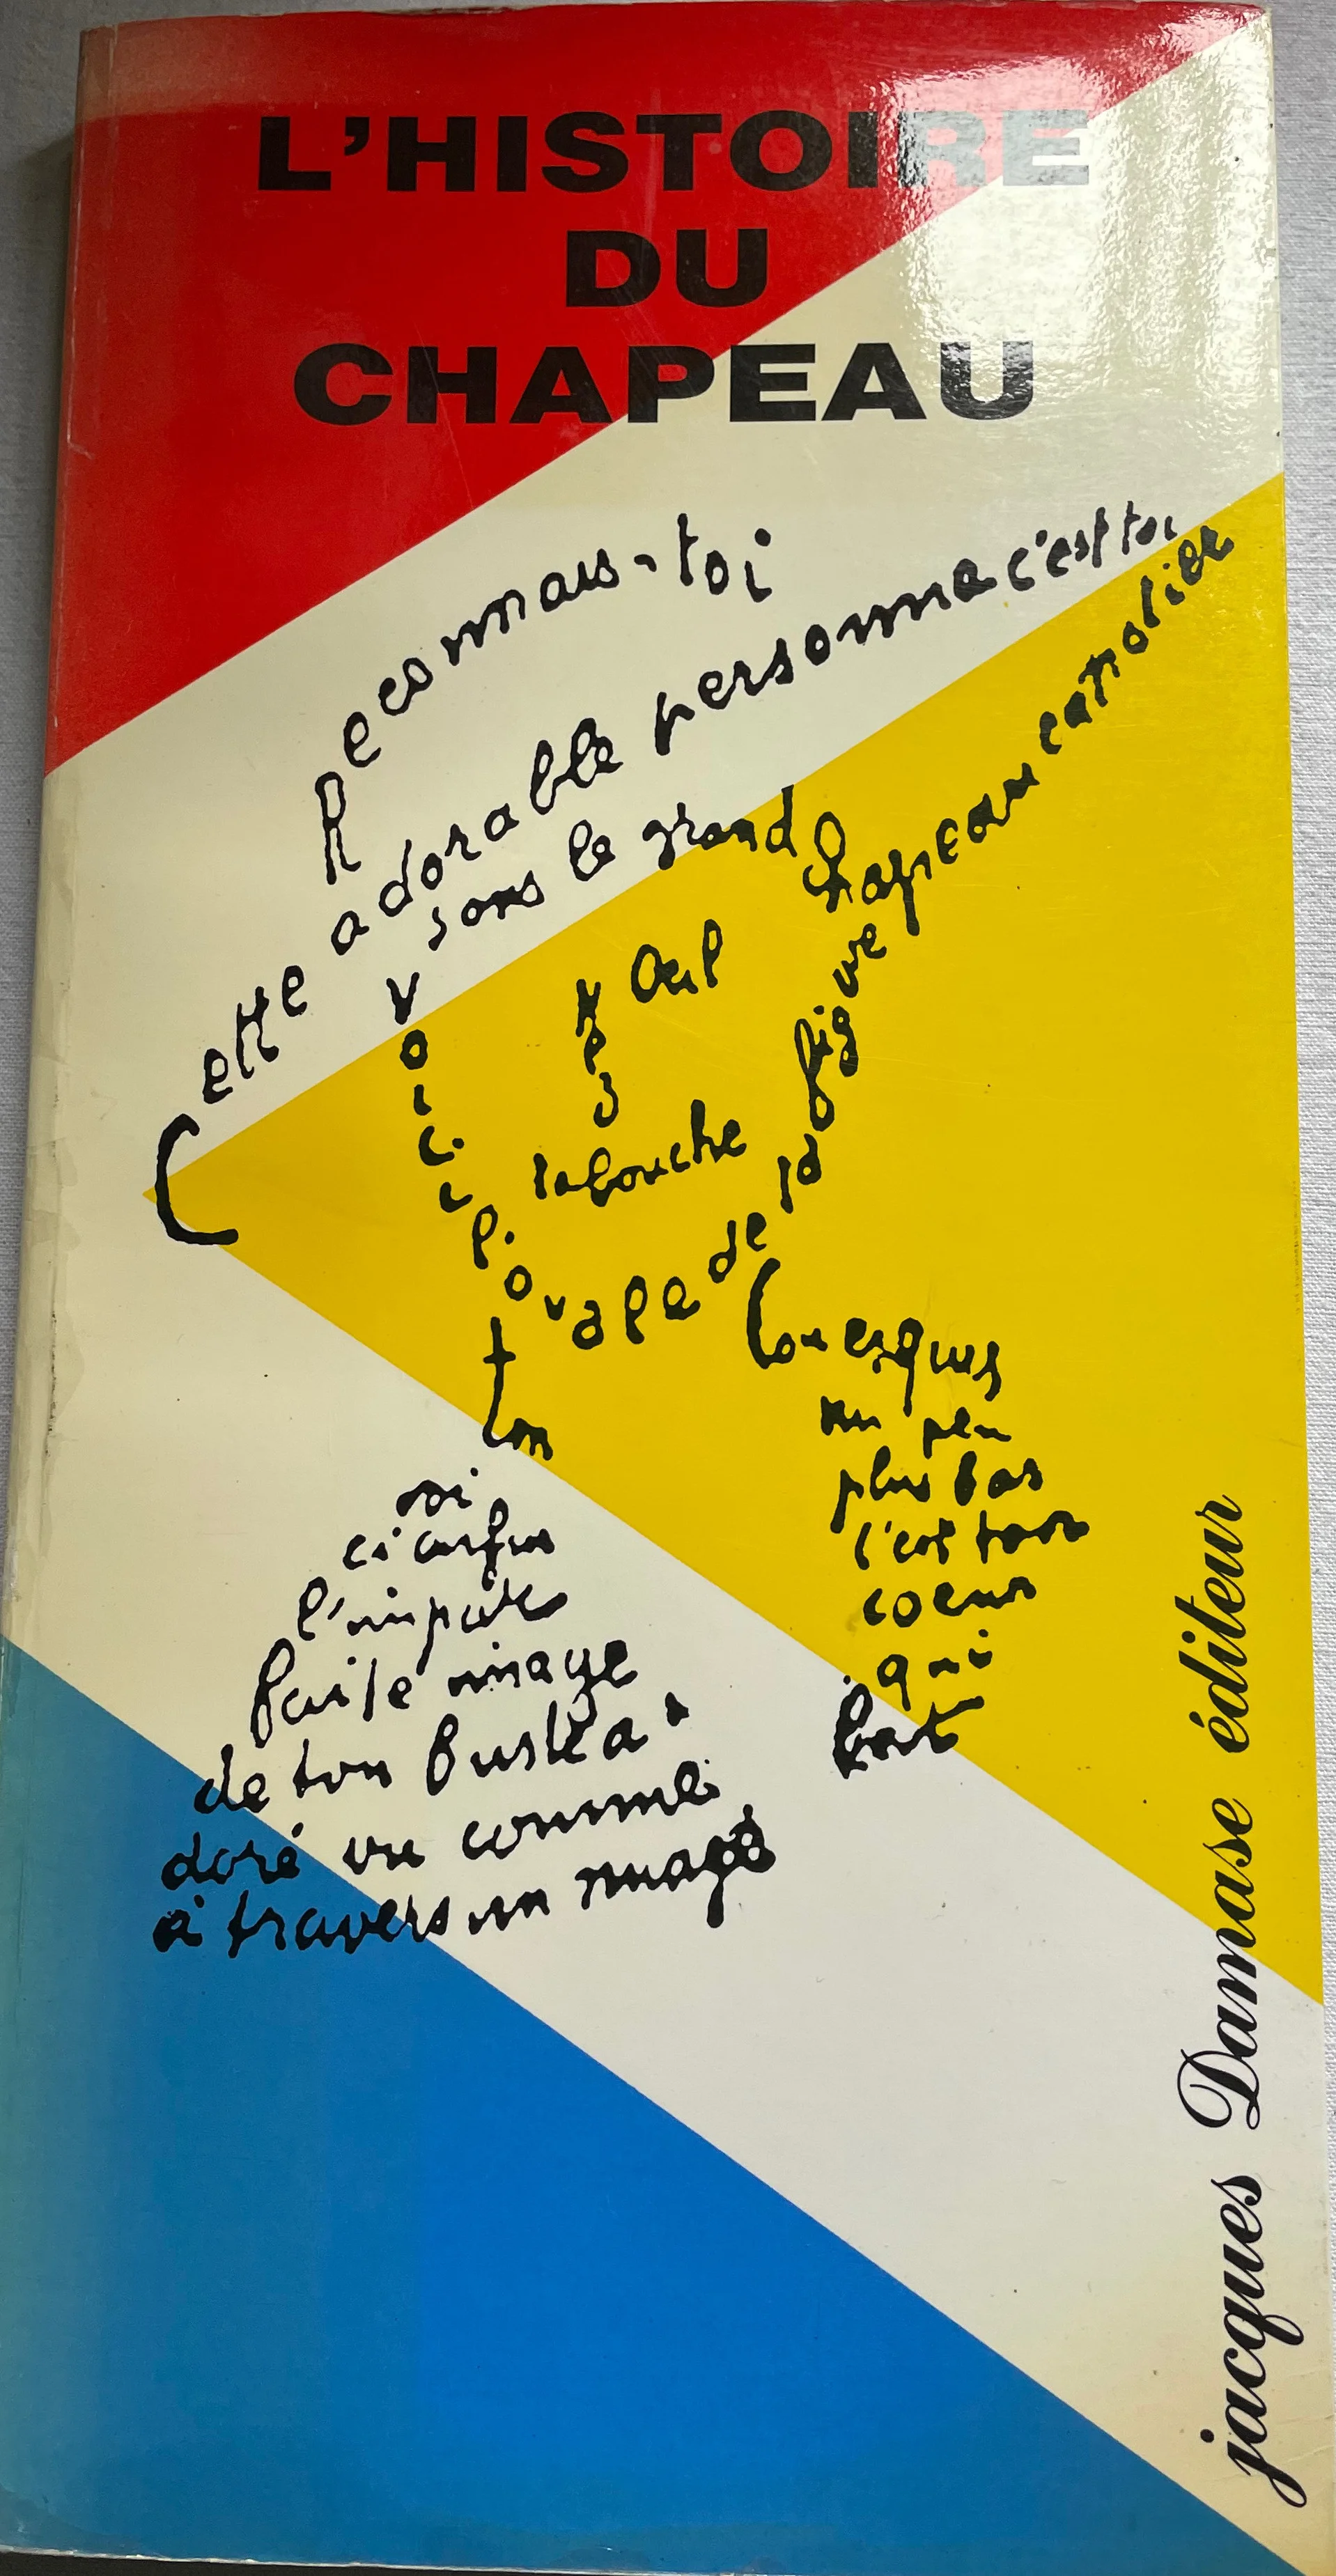 L'HISTOIRE
DU
CHAPEAU
Reconnais-toi
Cette adorable personne c'est toi
sous le grand chapeau canotier
Oeil
Nez
la bouche
Voici l'ovale de ta figure
ton
cou exquis
un peu
plus bas
c'est ton
coeur
qui
bat
ci enfin
l'impar
faite image
de ton buste a
doré vu comme
à travers un nuage
jacques Damase éditeur